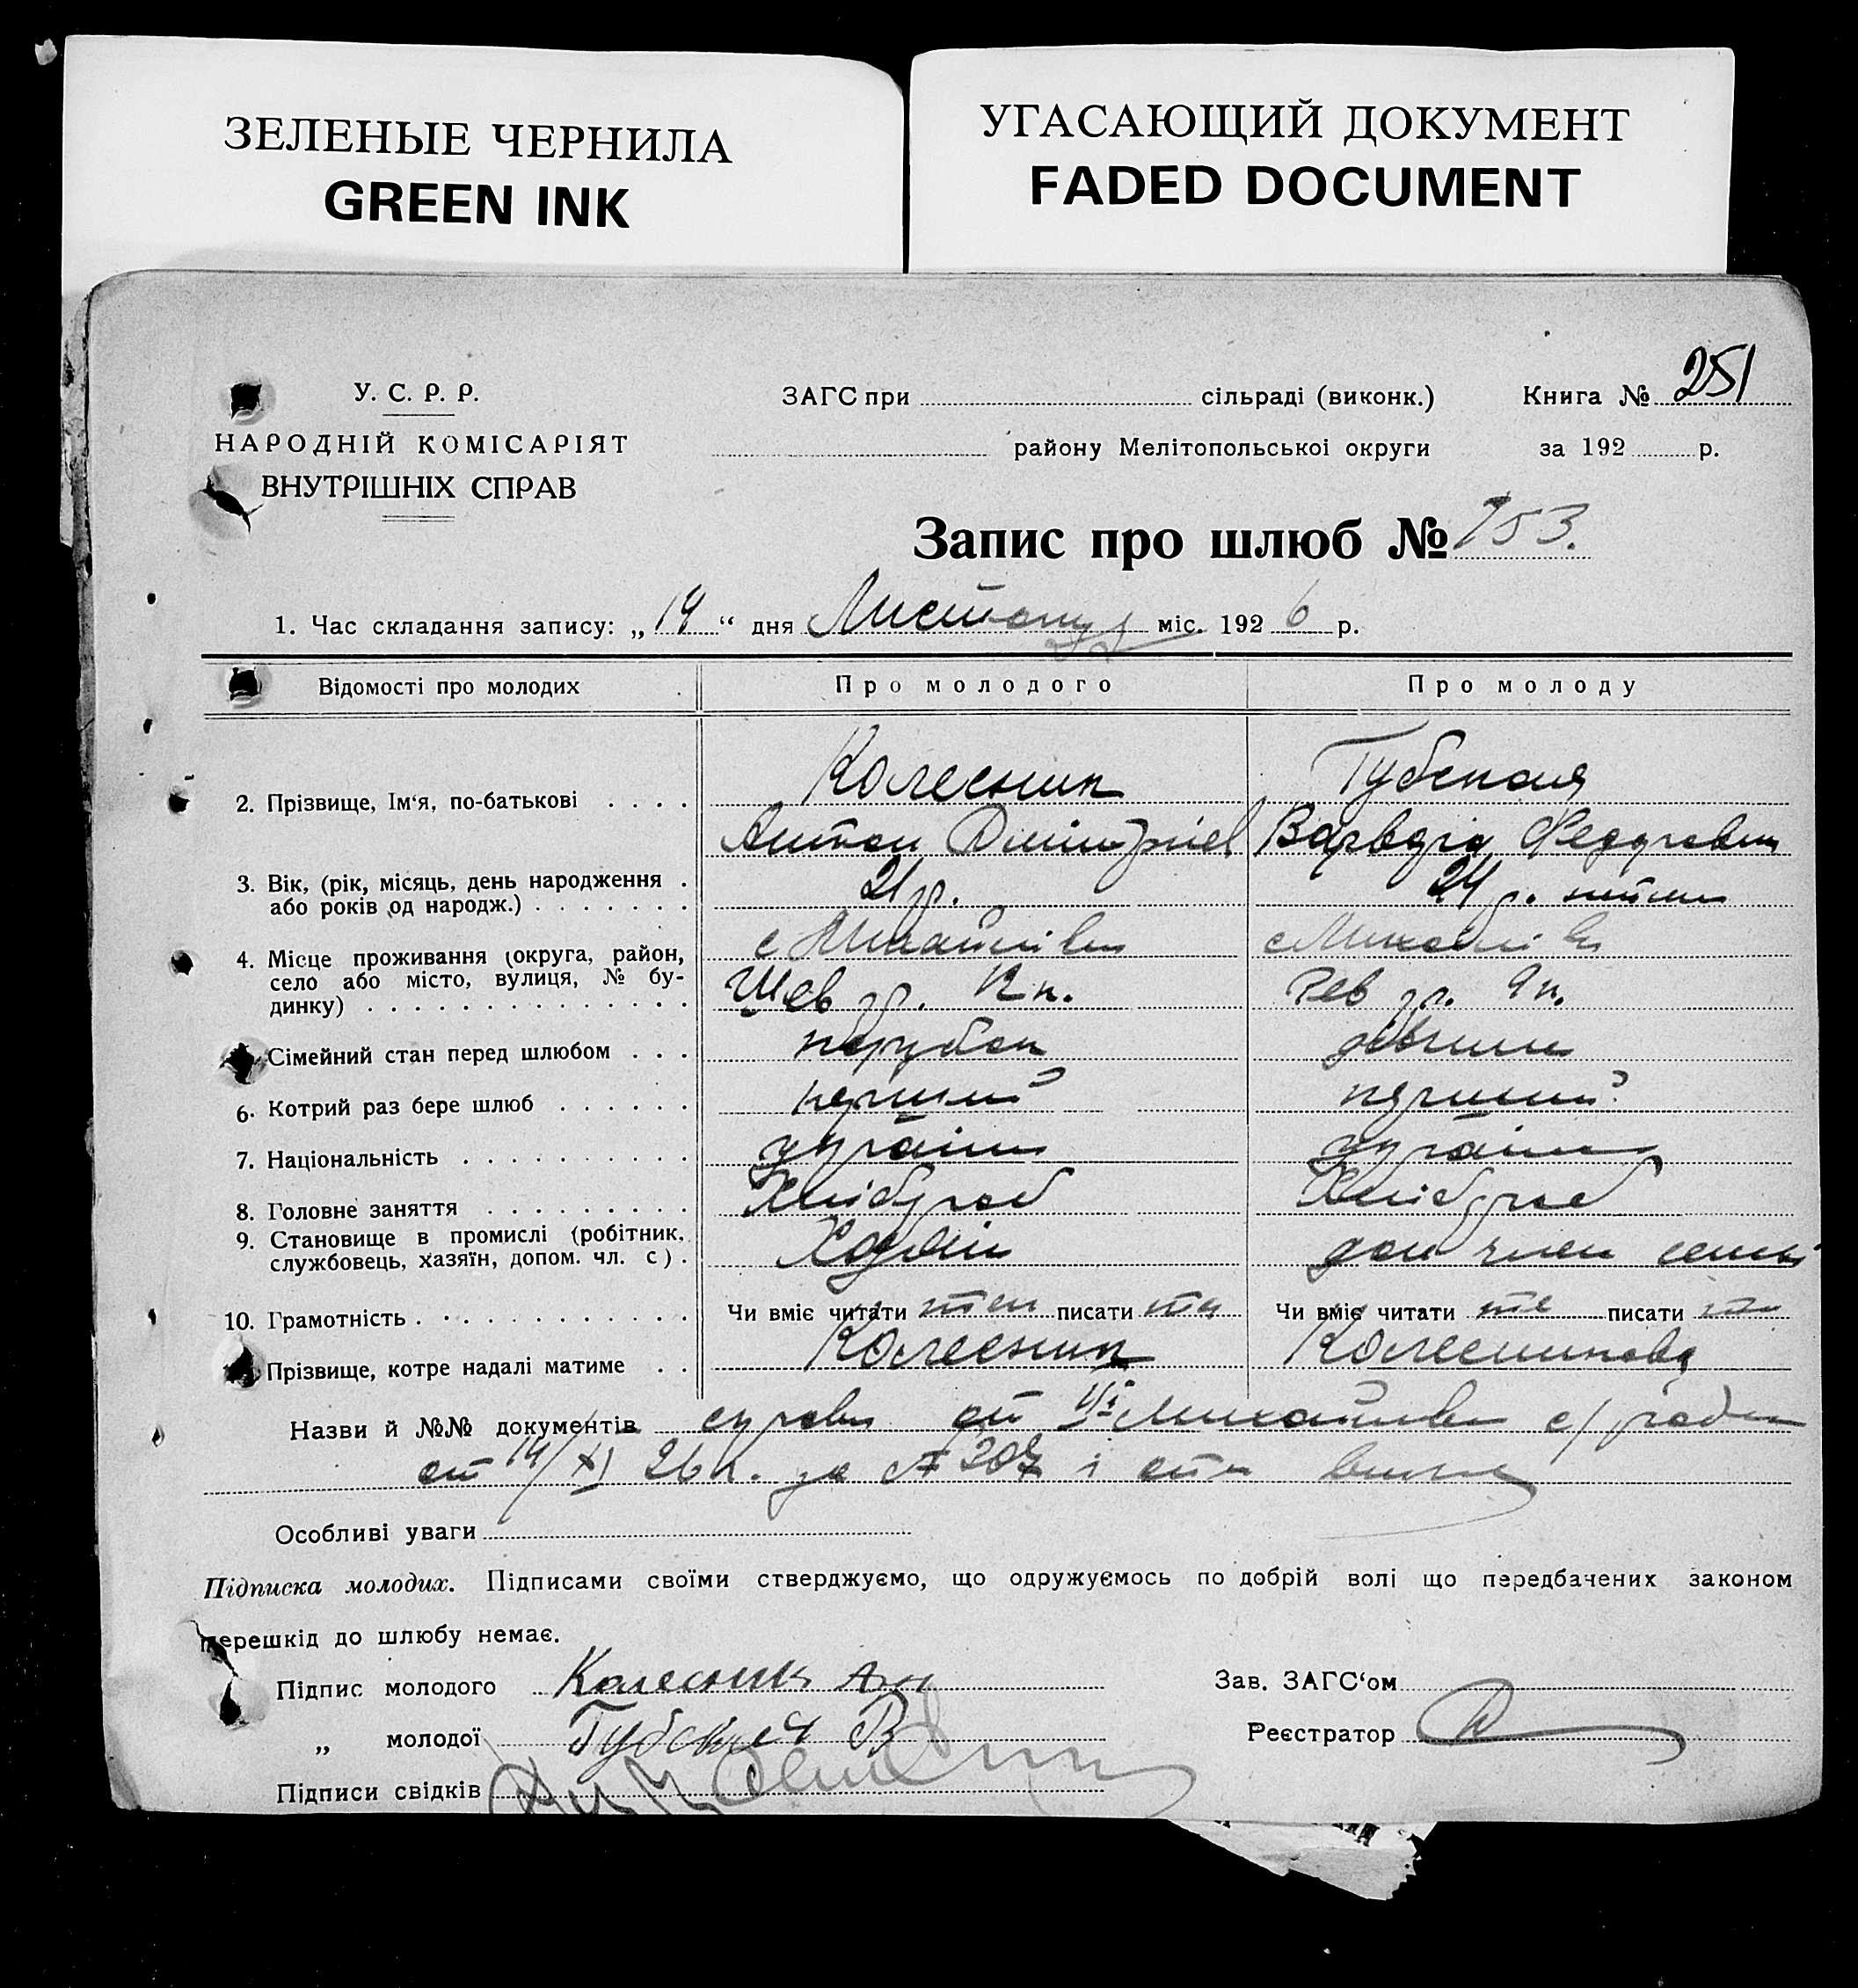 ЗЕЛЕНЫЕ ЧЕРНИЛА
GREEN INK
УГАСАЮЩИЙ ДОКУМЕНТ
FADED DOCUMENT
У. С. Р. Р.
НАРОДНІЙ КОМІСАРІЯТ
ВНУТРІШНІХ СПРАВ
ЗАГС при сільраді (виконк.)
району Мелітопольскої округи
Книга № 251
за 192 р.
Запис про шлюб № 153.
1. Час складання запису: „19“ дня Листопад міс. 1926 р.
Відомості про молодих
Про молодого
Про молоду
2. Прізвище, Ім‘я, по-батькові
Колесник
Антон Дмітріев
Губская
Федоровна
3. Вік, (рік, місяць, день народження
або років од народж.)
21 р.
24 р.
4. Місце проживання (округа, район,
село або місто, вулиця, № бу-
динку)
с Михайлівка
Шев гр. 12 п.
с Михайлівка
Рев гр. 9 п.
Сімейний стан перед шлюбом
парубок
дівчина
6. Котрий раз бере шлюб
перший
перший
7. Національність
україн
україн
8. Головне заняття
Хлібороб
Хлібороб
9. Становище в промислі (робітник,
службовець, хазяїн, допом. чл. с)
Хазяїн
доп член семьі
10. Грамотність
Чи вміє читати так писати так
Чи вміє читати так писати так
Прізвище, котре надалі матиме
Колесник
Колесникова
Назви й №№ документів Михайлівск с/ради
від 19/XI 26 р. за № 307 і
Особливі уваги
Підписка молодих. Підписами своїми стверджуємо, що одружуємось по добрій волі що передбачених законом
перешкід до шлюбу немає.
Підпис молодого Колесник Ан
„ молодої В
Підписи свідків
Зав. ЗАГС‘ом
Реєстратор